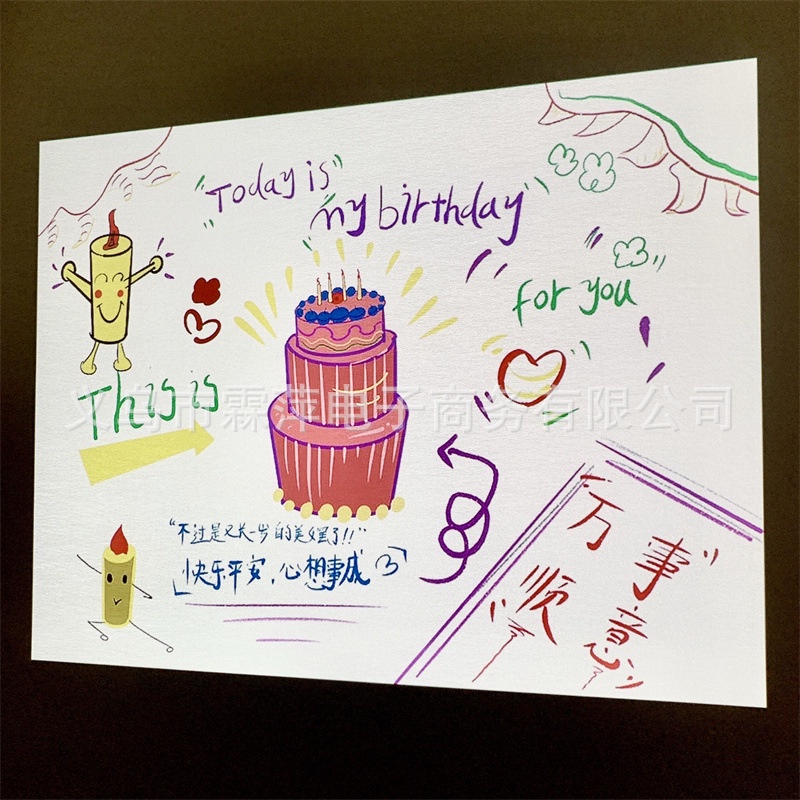 "Today is
my birthday"
for you
This is
义乌市霖萍电子商务有限公司
"不过是又长一岁的美女罢了!!"
快乐平安,心想事成
万事
顺意